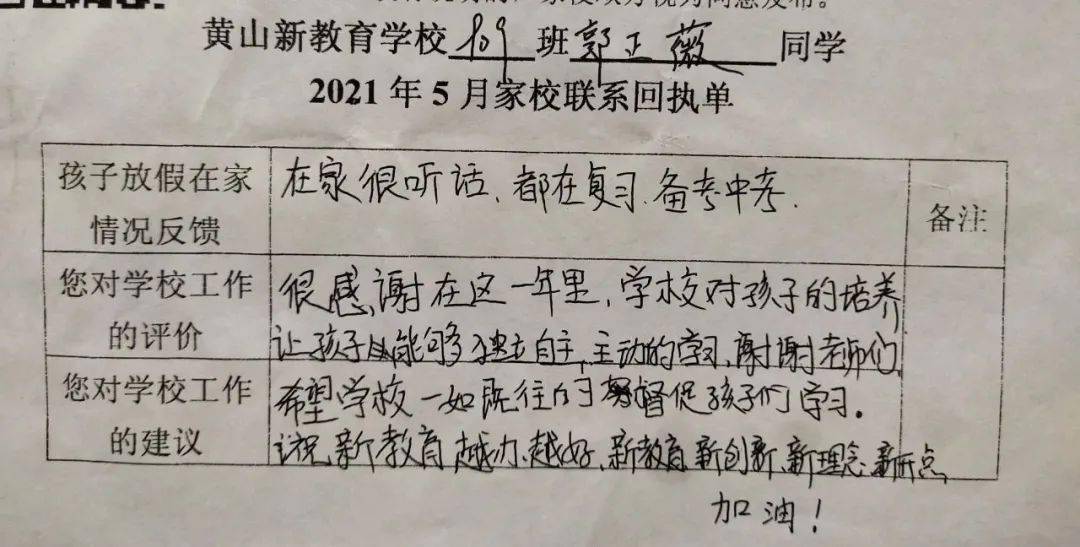 家校双方视为同意发布。
黄山新教育学校 909 班 郭正薇 同学
2021年5月家校联系回执单
孩子放假在家情况反馈
在家很听话、都在复习、备考中考.
备注
您对学校工作的评价
很感谢在这一年里,学校对孩子的培养
让孩子能够独立自主,主动的学习,谢谢老师们
您对学校工作的建议
希望学校一如既往的督促孩子们学习。
祝新教育越办越好,新教育,新创新,新理念,新
点
加油!